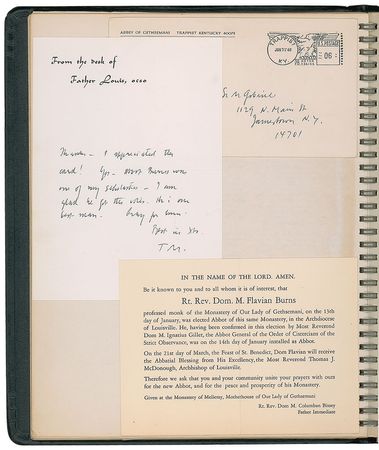 ABBEY OF GETHSEMANI TRAPPIST KENTUCKY 40073
TRAPPIST
KY.
U.S. POSTAGE
06
From the desk of
Father Louis, ocso
Sr M Gabriel
1129 N. Main St
Jamestown N.Y.
14701
Thanks - I appreciated the
card! Yes - Abbot Burns was
one of my scholastics - I am
glad he got the votes. He is our
best man. Pray for him.
Best in Xto.
T M.
IN THE NAME OF THE LORD. AMEN.
Be it known to you and to all whom it is of interest, that
Rt. Rev. Dom. M. Flavian Burns
professed monk of the Monastery of Our Lady of Gethsemani, on the 13th
day of January, was elected Abbot of this same Monastery, in the Archdiocese
of Louisville. He, having been confirmed in this election by Most Reverend
Dom M. Ignatius Gillet, the Abbot General of the Order of Cistercians of the
Strict Observance, was on the 14th day of January installed as Abbot.
On the 21st day of March, the Feast of St. Benedict, Dom Flavian will receive
the Abbatial Blessing from His Excellency, the Most Reverend Thomas J.
McDonough, Archbishop of Louisville.
Therefore we ask that you and your community unite your prayers with ours
for the new Abbot, and for the peace and prosperity of his Monastery.
Given at the Monastery of Melleray, Motherhouse of Our Lady of Gethsemani
Rt. Rev. Dom M. Columban Bissey
Father Immediate